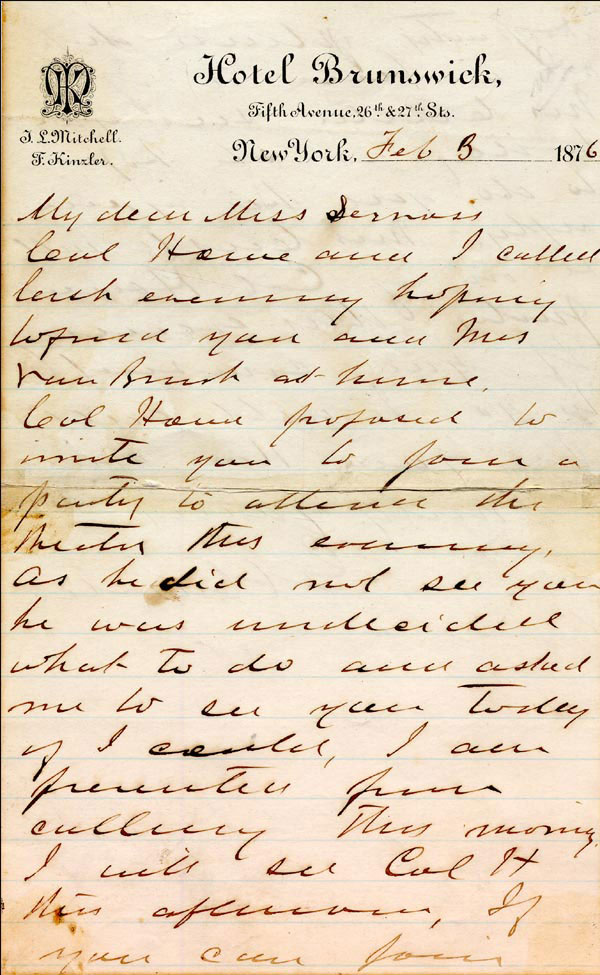 Hotel Brunswick,
Fifth Avenue, 26th & 27th Sts.
J. L. Mitchell.
F. Kinzler.
New York, Feb 3 1876
My dear Miss
Col Howe and I called
last evening hoping
to find you and Mrs
Van Brunt at home.
Col Howe proposed to
invite you to join a
party to attend the
theater this evening.
As he did not see you
he was undecided
what to do and asked
me to see you today
if I could, I am
prevented from
calling this morning.
I will see Col H
this afternoon, If
you can join